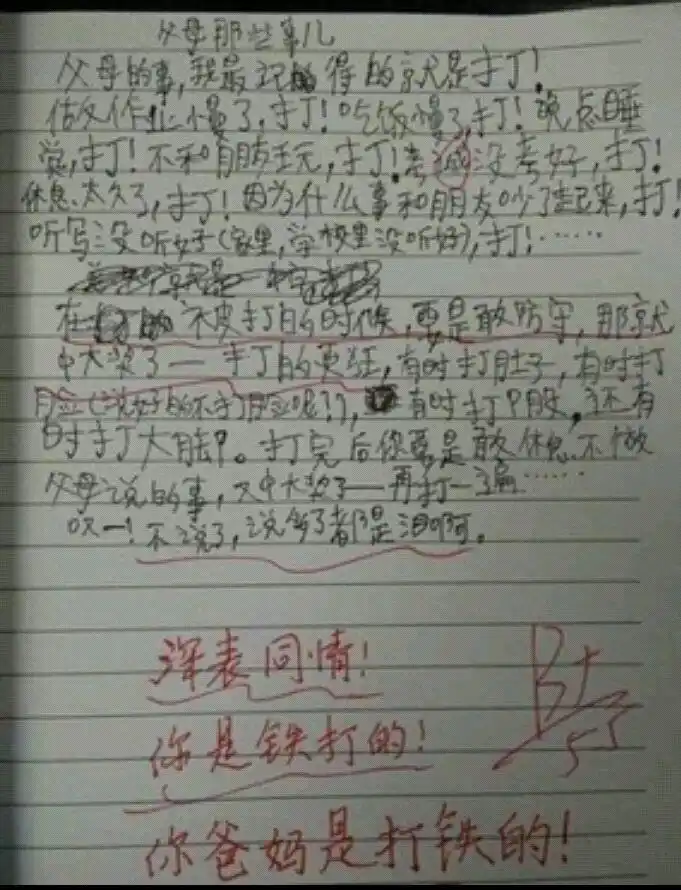 父母那些事儿
父母的事，我最记得的就是打！
做作业慢了，打！吃饭慢了，打！晚点睡
觉，打！不和朋友玩，打！考试没考好，打！
休息太久了，打！因为什么事和朋友吵了起来，打！
听写没听好（家里，学校里没听好），打！……
在 被打的时候，要是敢防守，那就
中大奖了—打的更狂，有时打肚子，有时打
脸（说好的不打脸呢？？），有时打屁股，还有
时打大腿。打完后你要是敢休息不做
父母说的事，又中大奖了—再打一遍……
哎—！不说了，说多了都是泪啊。
深表同情！
你是铁打的！
你爸妈是打铁的！
B+